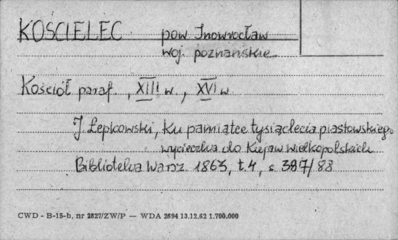 KOŚCIELEC pow Inowrocław
woj. poznańskie
Kościół paraf., XIII w., XVI w.
J. Łepkowski, Ku pamiątce tysiąclecia piastowskiego
wycieczka do Kujaw wielkopolskich
Biblioteka Warsz. 1863, t. 4, s. 387/88
CWD - B-15-b, nr 2827/ZW/P — WDA 2694 13.12.62 1.700.000